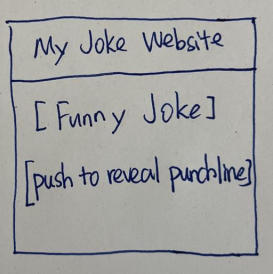 My Joke Website
[Funny Joke]
[push to reveal punchline]